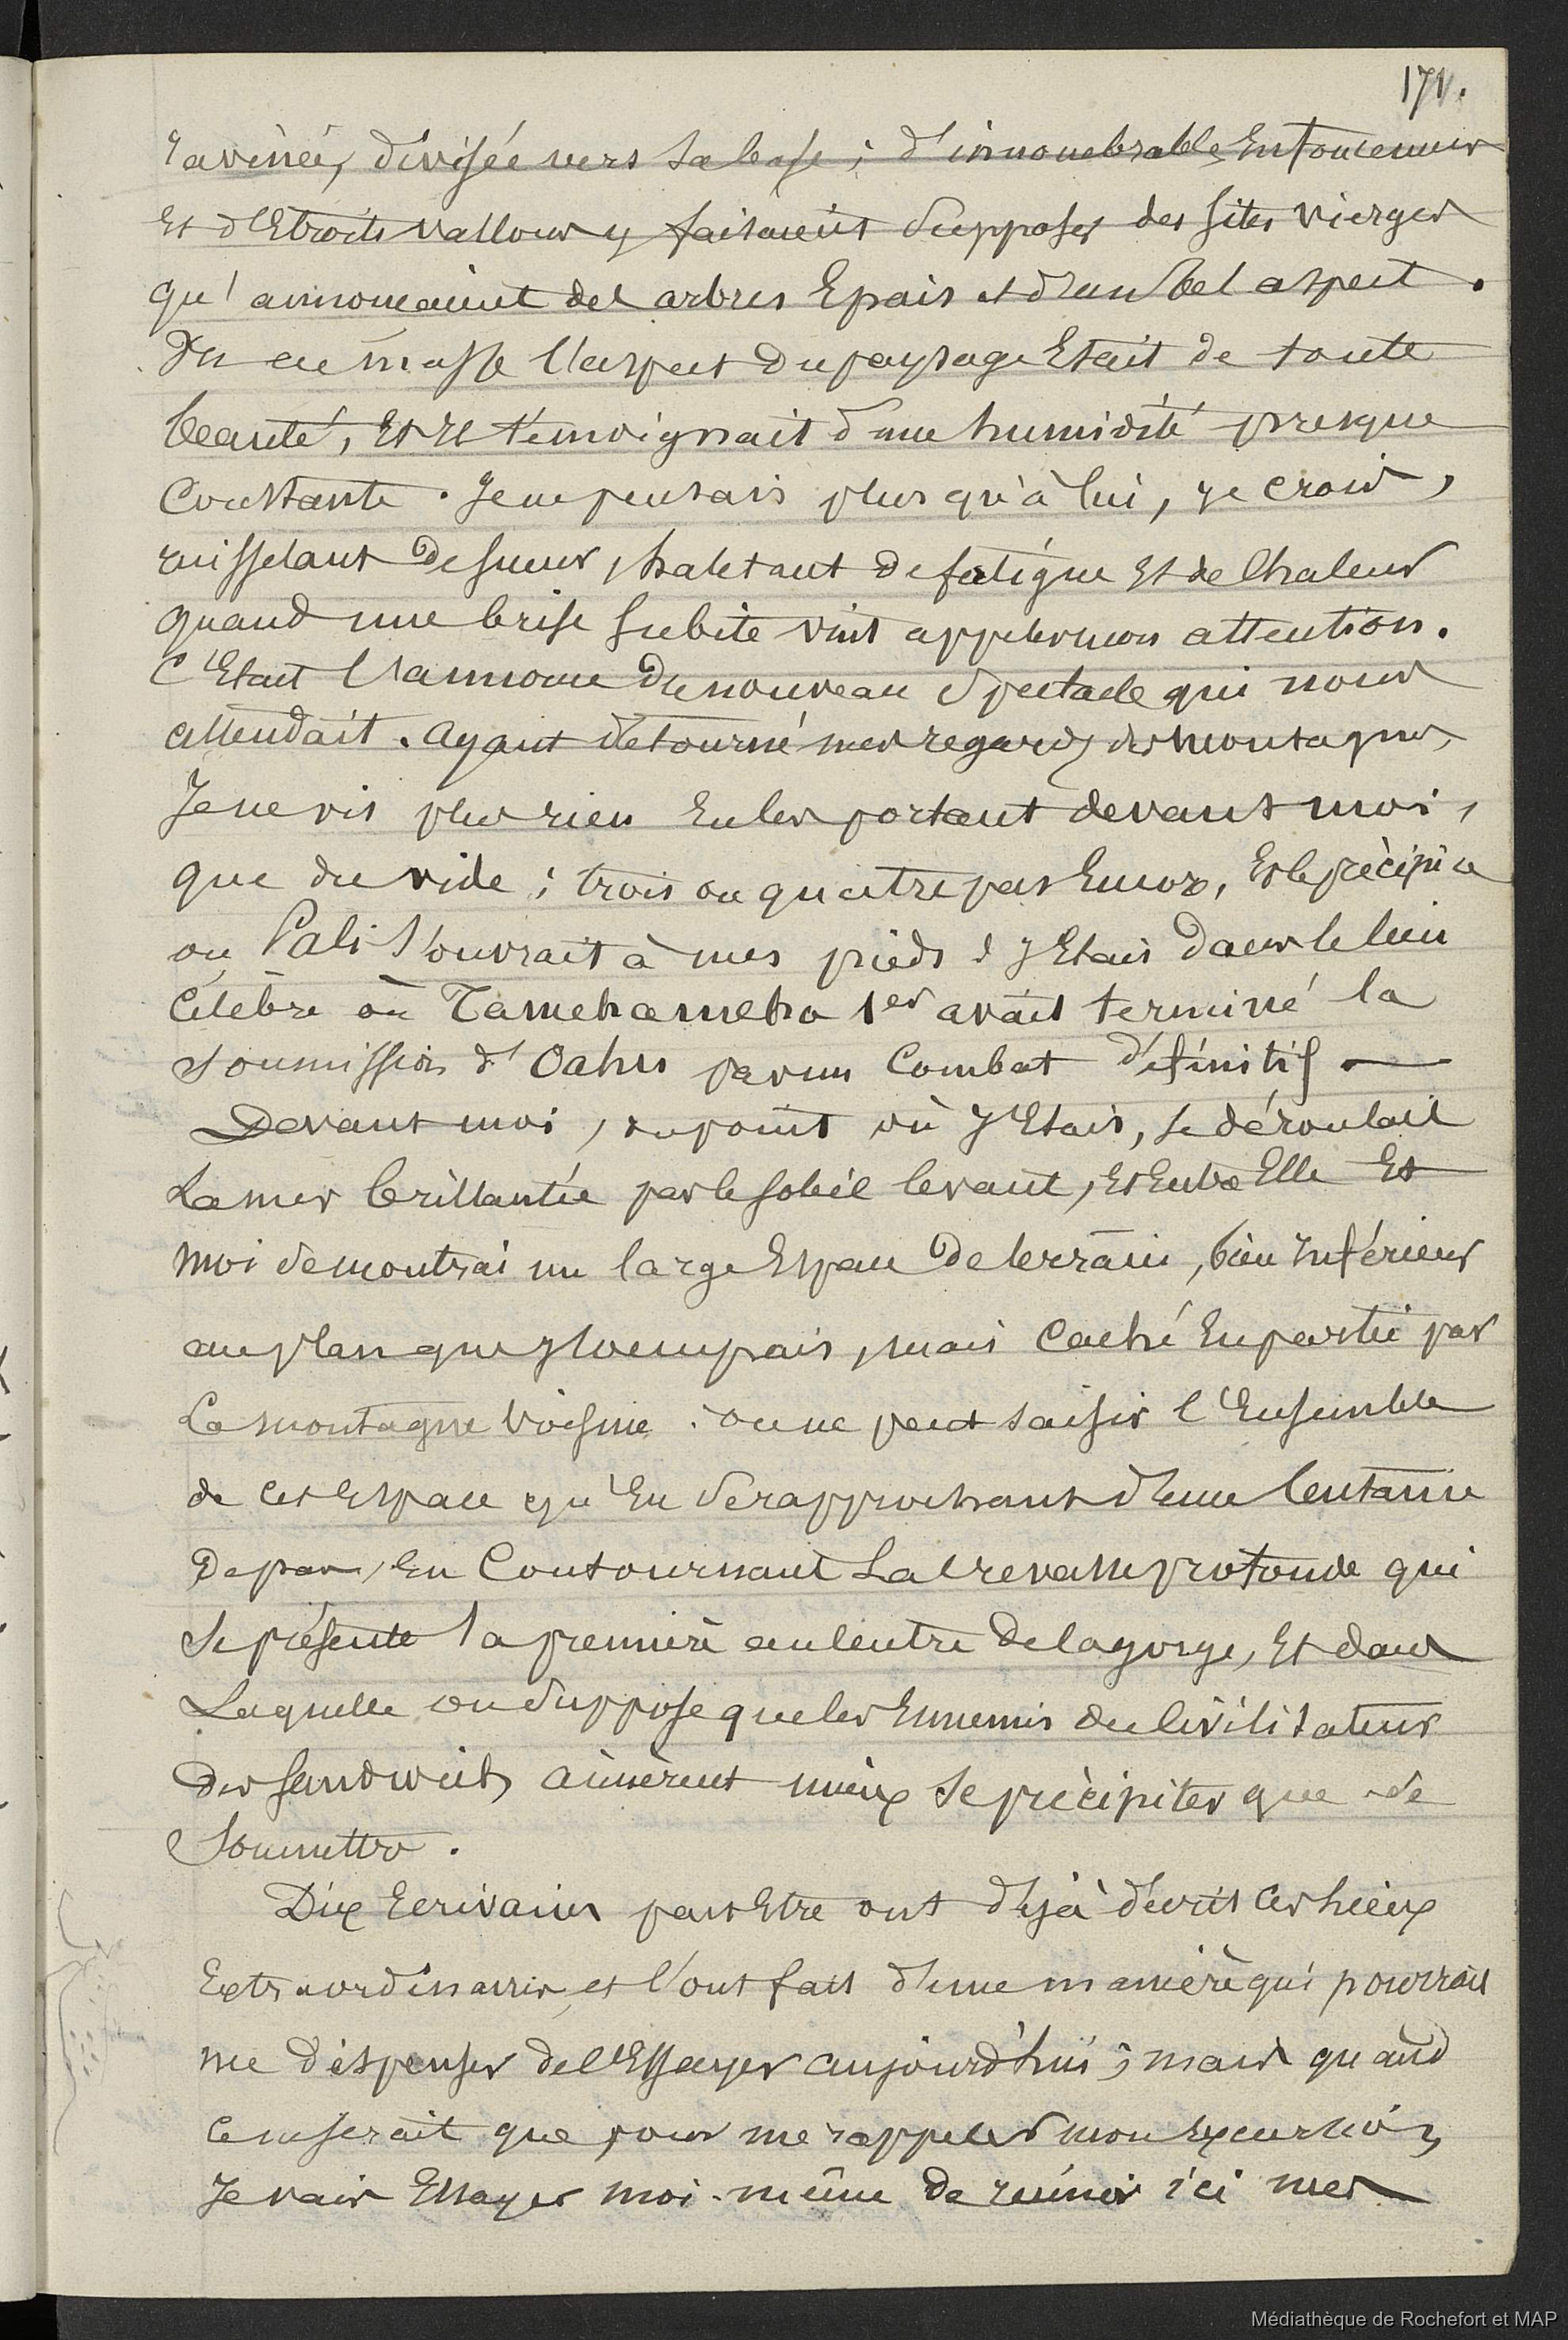 171.
ravinée, divisée vers sa base ; d'innombrables enfoncemens
et d'Etroits vallons y faisaient supposer des sites vierges
qu'annonçaient des arbres Epais et d'un bel aspect.
Du en masse l'aspect du paysage Etait de toute
beauté, et témoignait d'une humidité presque
Constante. Je ne pensais plus qu'à lui, je crois,
ruisselant de sueur, haletant de fatigue et de Chaleur
quand une brise subite vint appeler mon attention.
C'Etait l'annonce du nouveau spectacle qui nous
attendait. Ayant détourné mes regards des montagnes,
Je ne vis plus rien En les portant devant moi,
que du vide ; trois ou quatre pas Encore, Et le précipice
ou Pali s'ouvrait à mes pieds & j'Etais dans le lieu
Célèbre où Tamehameha 1er avait terminé la
soumission d'Oahu par un Combat définitif —
Devant moi, au point où j'Etais, se déroulait
La mer brillantée par le soleil levant, Et Entre Elle Et
moi se montrai un large Espace de terrain, bien Inférieur
au plan que j'occupais, mais Caché En partie par
La montagne voisine. on ne peut saisir l'Ensemble
de cet Espace qu'En se rapprochant d'une Centaine
de pas, En Contournant La Crevasse profonde qui
se présente la première au Centre de la gorge, Et dans
Laquelle on suppose que les Ennemis du Civilisateur
des Sandwich aimèrent mieux se précipiter que de
soumettre.
Dix Ecrivains peut Etre ont déjà décrit Ces lieux
Extraordinaires, et l'ont fait d'une manière qui pourrait
me dispenser de l'Essayer aujourd'hui ; mais quand
Ce ne serait que pour me rappeler mon Excursion,
Je vais Essayer moi-même de réunir ici mes
Médiathèque de Rochefort et MAP